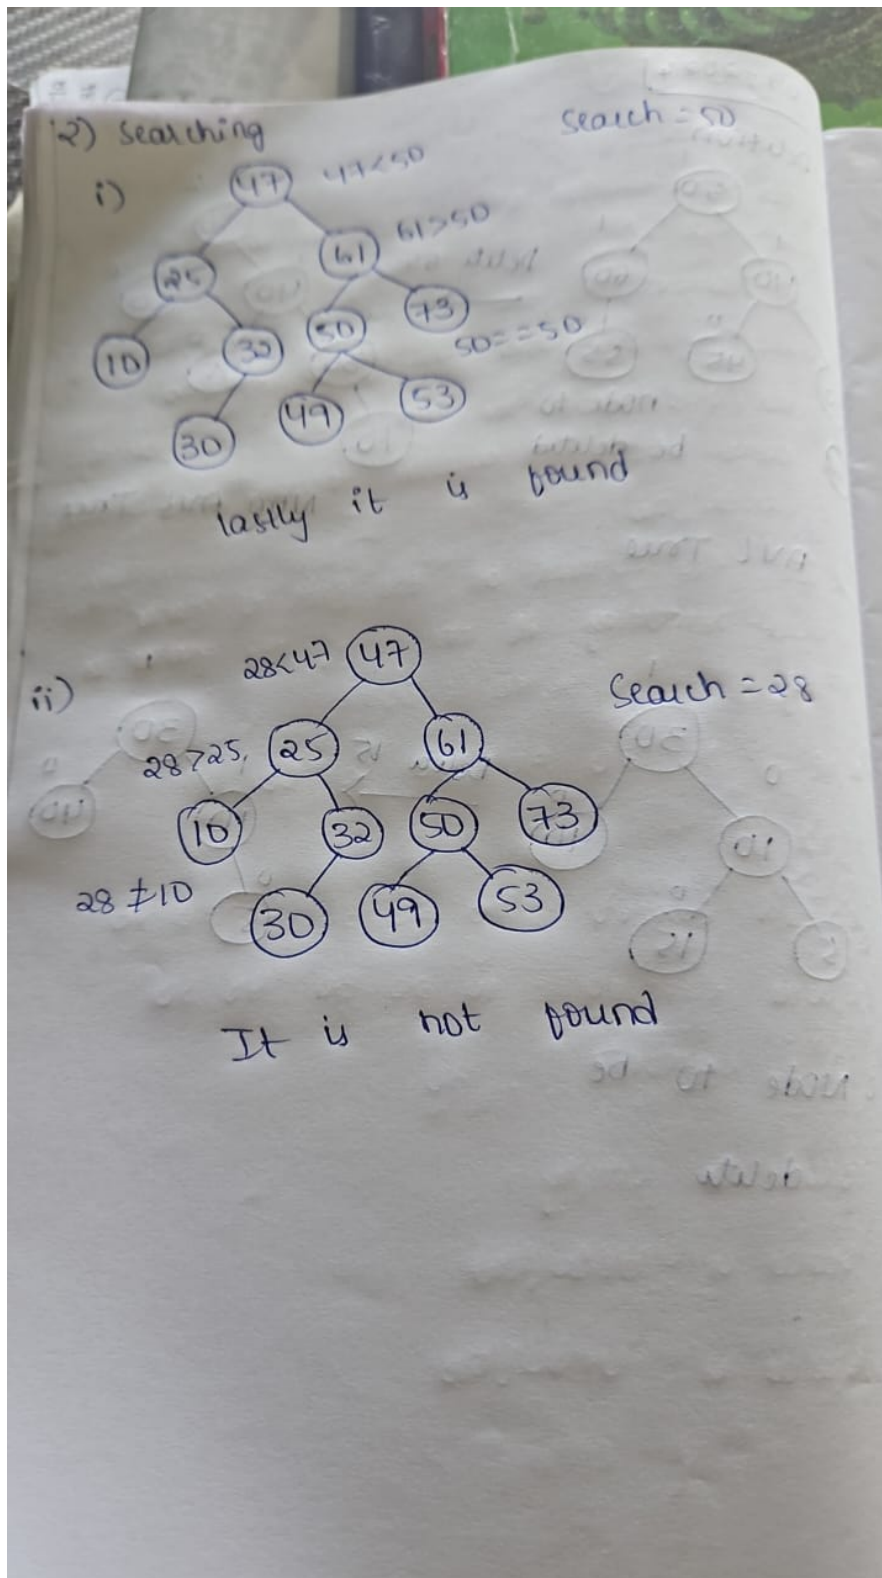 2) Searching Search = 50
i) 47 47<50
61 61>50
25
50 73
10 32 50==50
49 53
30
lastly it is found
28<47 47
ii) Search = 28
28>25. 25 61
10 32 50 73
28 ≠ 10
30 49 53
It is not found